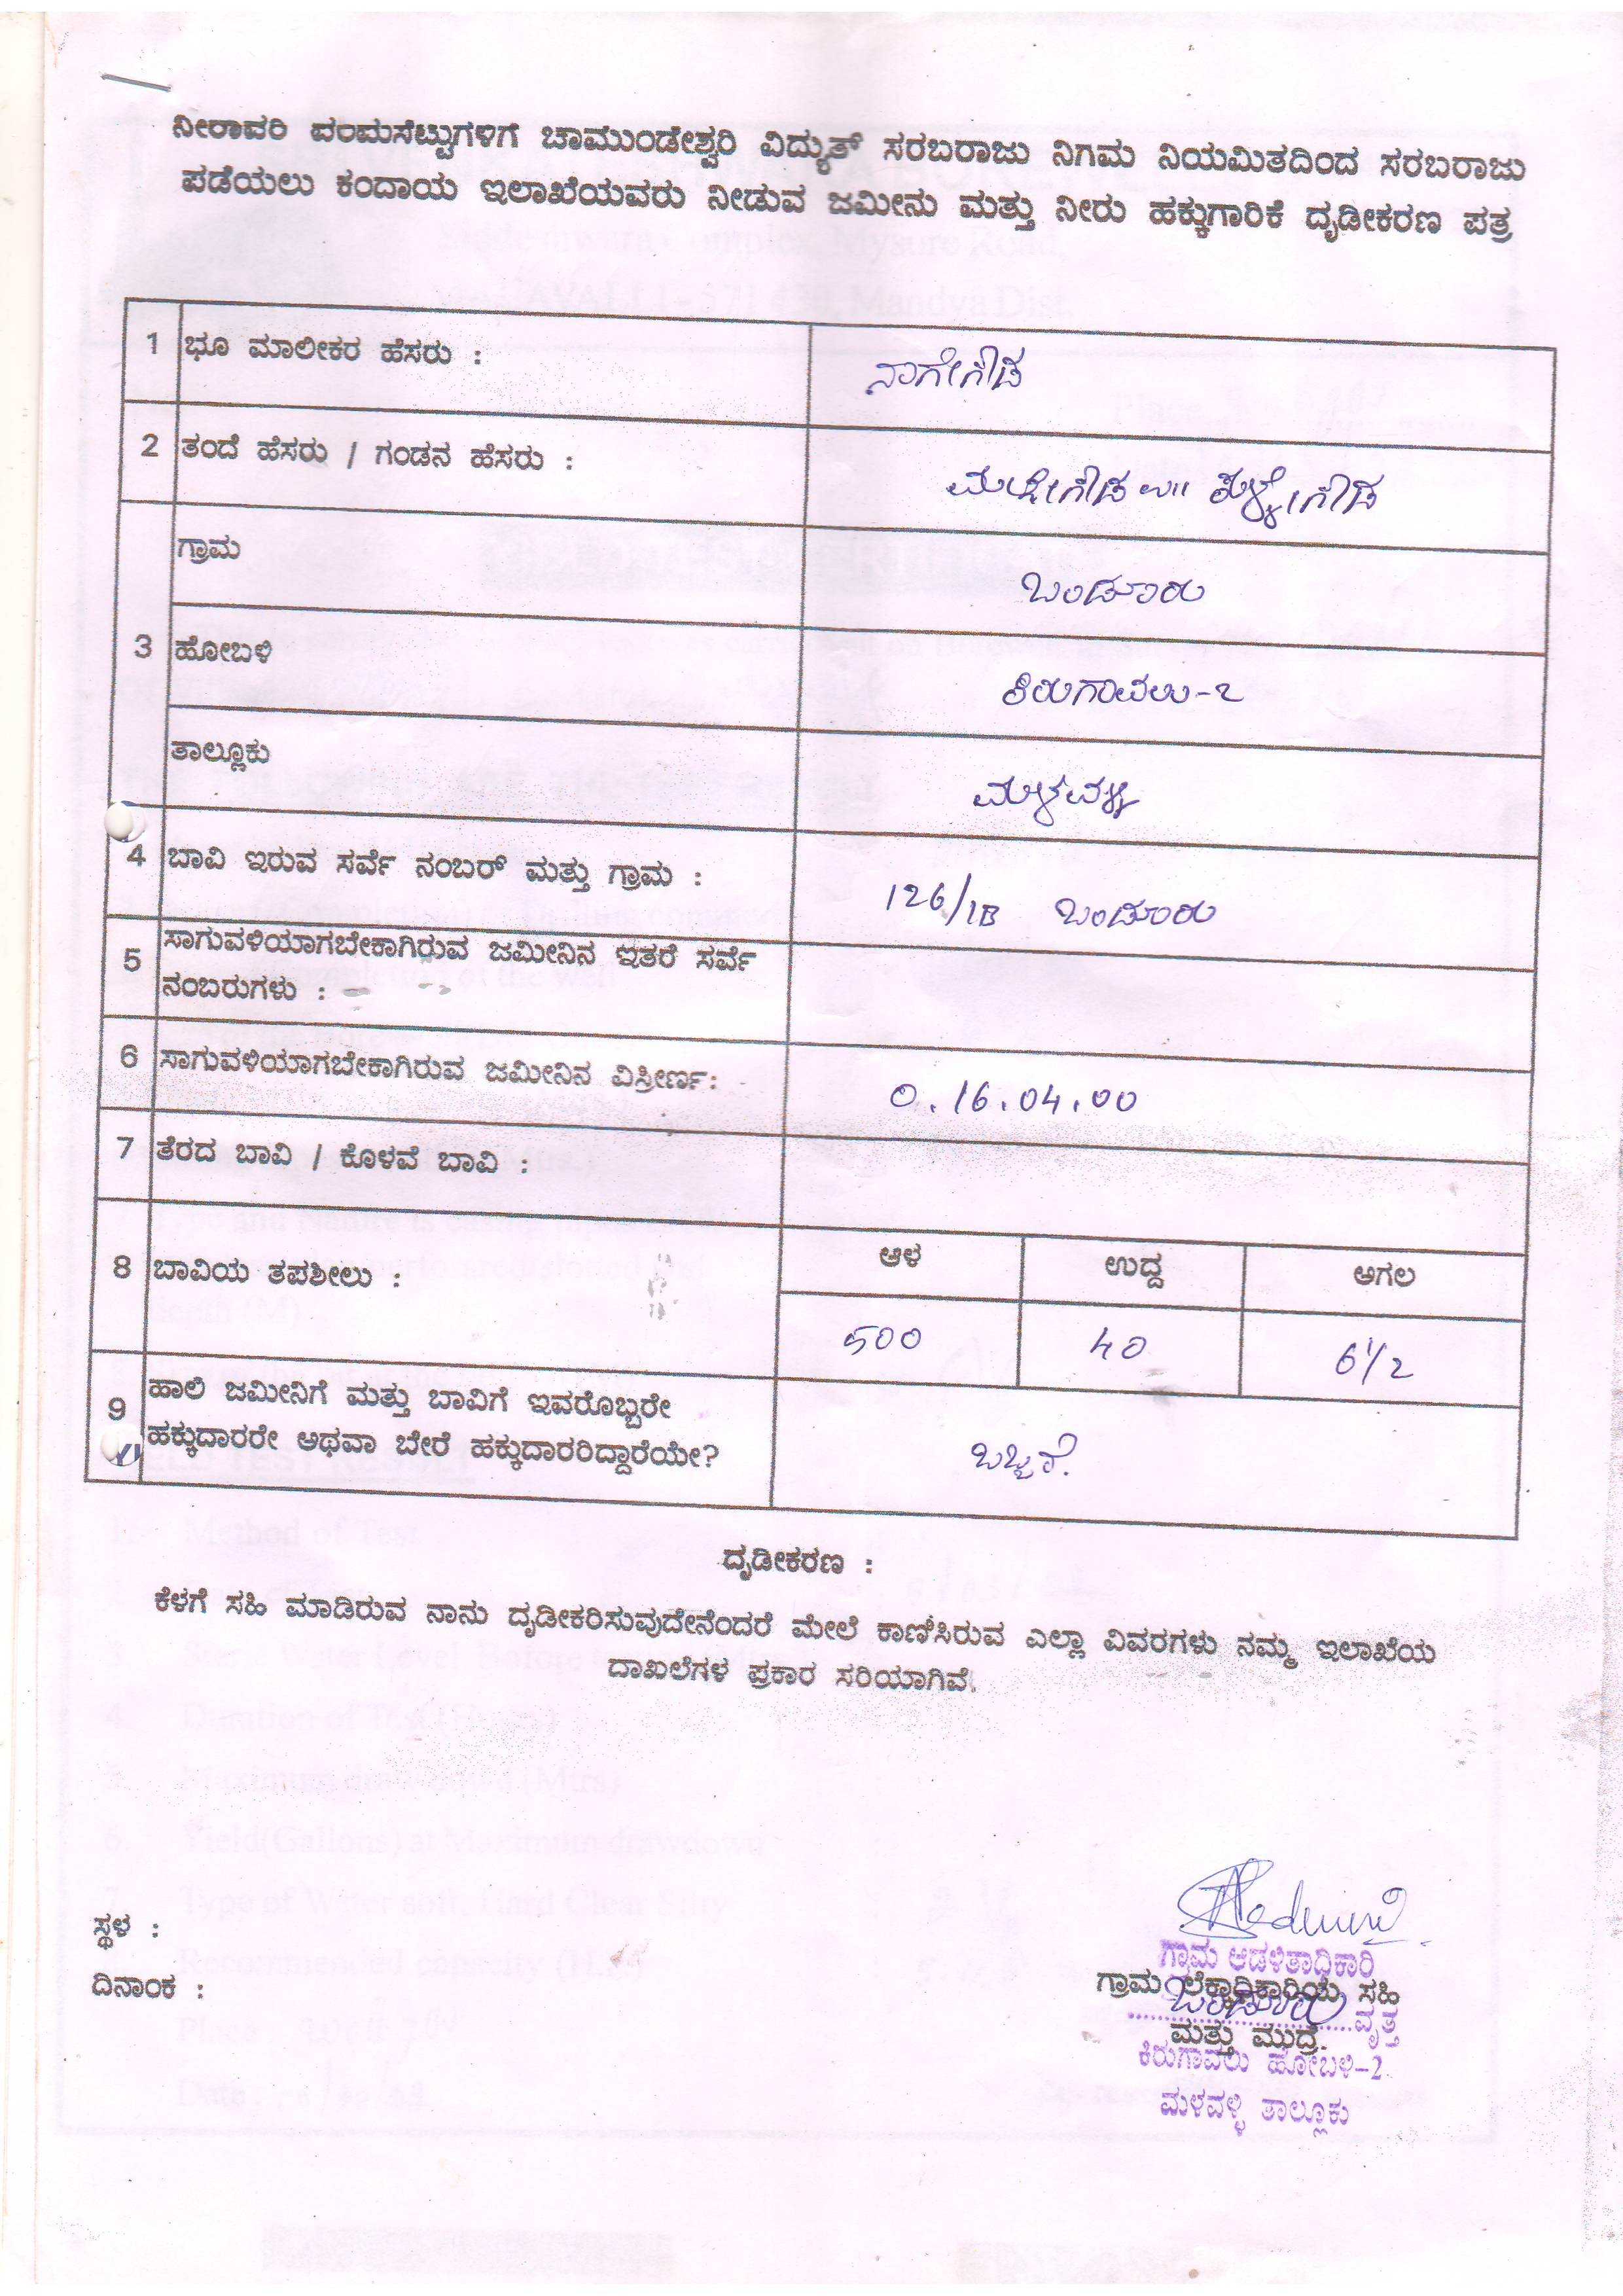 ನೀರಾವರಿ ಪಂಮಸೆಟ್ಟುಗಳಿಗೆ ಚಾಮುಂಡೇಶ್ವರಿ ವಿದ್ಯುತ್ ಸರಬರಾಜು ನಿಗಮ ನಿಯಮಿತದಿಂದ ಸರಬರಾಜು
ಪಡೆಯಲು ಕಂದಾಯ ಇಲಾಖೆಯವರು ನೀಡುವ ಜಮೀನು ಮತ್ತು ನೀರು ಹಕ್ಕುಗಾರಿಕೆ ದೃಡೀಕರಣ ಪತ್ರ
1 ಭೂ ಮಾಲೀಕರ ಹೆಸರು : ನಾಗೇಗೌಡ
2 ತಂದೆ ಹೆಸರು / ಗಂಡನ ಹೆಸರು :
ಗ್ರಾಮ ಬಂಡೂರು
3 ಹೋಬಳಿ ಕಿರುಗಾವಲು-2
ತಾಲ್ಲೂಕು ಮಳವಳ್ಳಿ
4 ಬಾವಿ ಇರುವ ಸರ್ವೆ ನಂಬರ್ ಮತ್ತು ಗ್ರಾಮ : 126/1B ಬಂಡೂರು
5 ಸಾಗುವಳಿಯಾಗಬೇಕಾಗಿರುವ ಜಮೀನಿನ ಇತರೆ ಸರ್ವೆ
ನಂಬರುಗಳು :
6 ಸಾಗುವಳಿಯಾಗಬೇಕಾಗಿರುವ ಜಮೀನಿನ ವಿಸ್ತೀರ್ಣ: 0.16.04.00
7 ತೆರದ ಬಾವಿ / ಕೊಳವೆ ಬಾವಿ :
8 ಬಾವಿಯ ತಪಶೀಲು : ಆಳ ಉದ್ದ ಅಗಲ
500 40 6 1/2
9 ಹಾಲಿ ಜಮೀನಿಗೆ ಮತ್ತು ಬಾವಿಗೆ ಇವರೊಬ್ಬರೇ
ಹಕ್ಕುದಾರರೇ ಅಥವಾ ಬೇರೆ ಹಕ್ಕುದಾರರಿದ್ದಾರೆಯೇ? ಒಬ್ಬರೆ.
ದೃಡೀಕರಣ :
ಕೆಳಗೆ ಸಹಿ ಮಾಡಿರುವ ನಾನು ದೃಡೀಕರಿಸುವುದೇನೆಂದರೆ ಮೇಲೆ ಕಾಣಿಸಿರುವ ಎಲ್ಲಾ ವಿವರಗಳು ನಮ್ಮ ಇಲಾಖೆಯ
ದಾಖಲೆಗಳ ಪ್ರಕಾರ ಸರಿಯಾಗಿವೆ.
ಸ್ಥಳ :
ದಿನಾಂಕ :
ಗ್ರಾಮ ಆಡಳಿತಾಧಿಕಾರಿ
ಗ್ರಾಮ ಲೆಕ್ಕಾಧಿಕಾರಿಯ ಸಹಿ
ಬಂಡೂರು ವೃತ್ತ
ಮತ್ತು ಮುದ್ರೆ.
ಕಿರುಗಾವಲು ಹೋಬಳಿ-2
ಮಳವಳ್ಳಿ ತಾಲ್ಲೂಕು